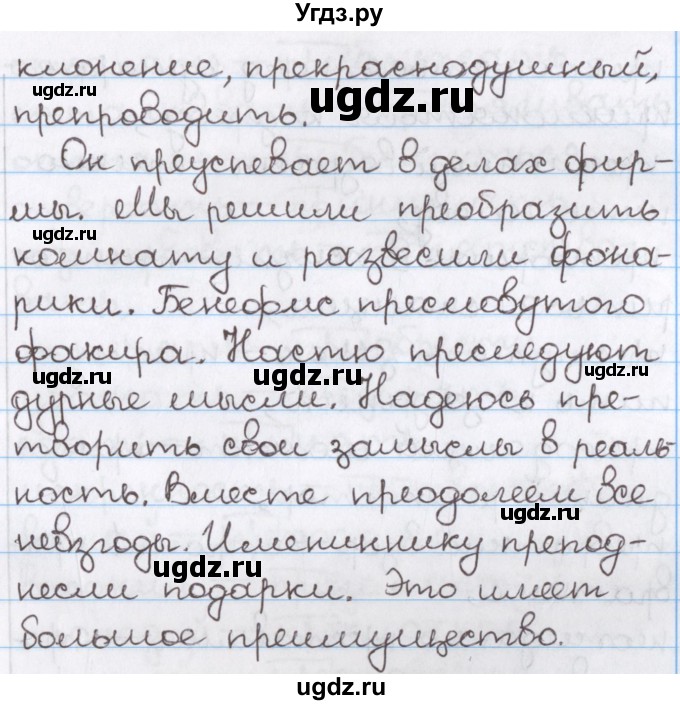 Угдз.ру
клонение, прекраснодушный,
ugdz.ru ugdz.ru
препроводить.
Он преуспевает в делах фир-
мы. Мы решили преобразить
ugdz.ru
комнату и развесили фона-
рики. Бенефис пресловутого
факира. Настю преследуют
ugdz.ru ugdz.ru ugdz.ru
дурные мысли. Надеюсь пре-
творить свои замыслы в реаль-
ность. Вместе преодолеем все
ugdz.ru
невзгоды. Имениннику препод-
ugdz.ru
несли подарки. Это имеет
большое преимущество.
ugdz.ru